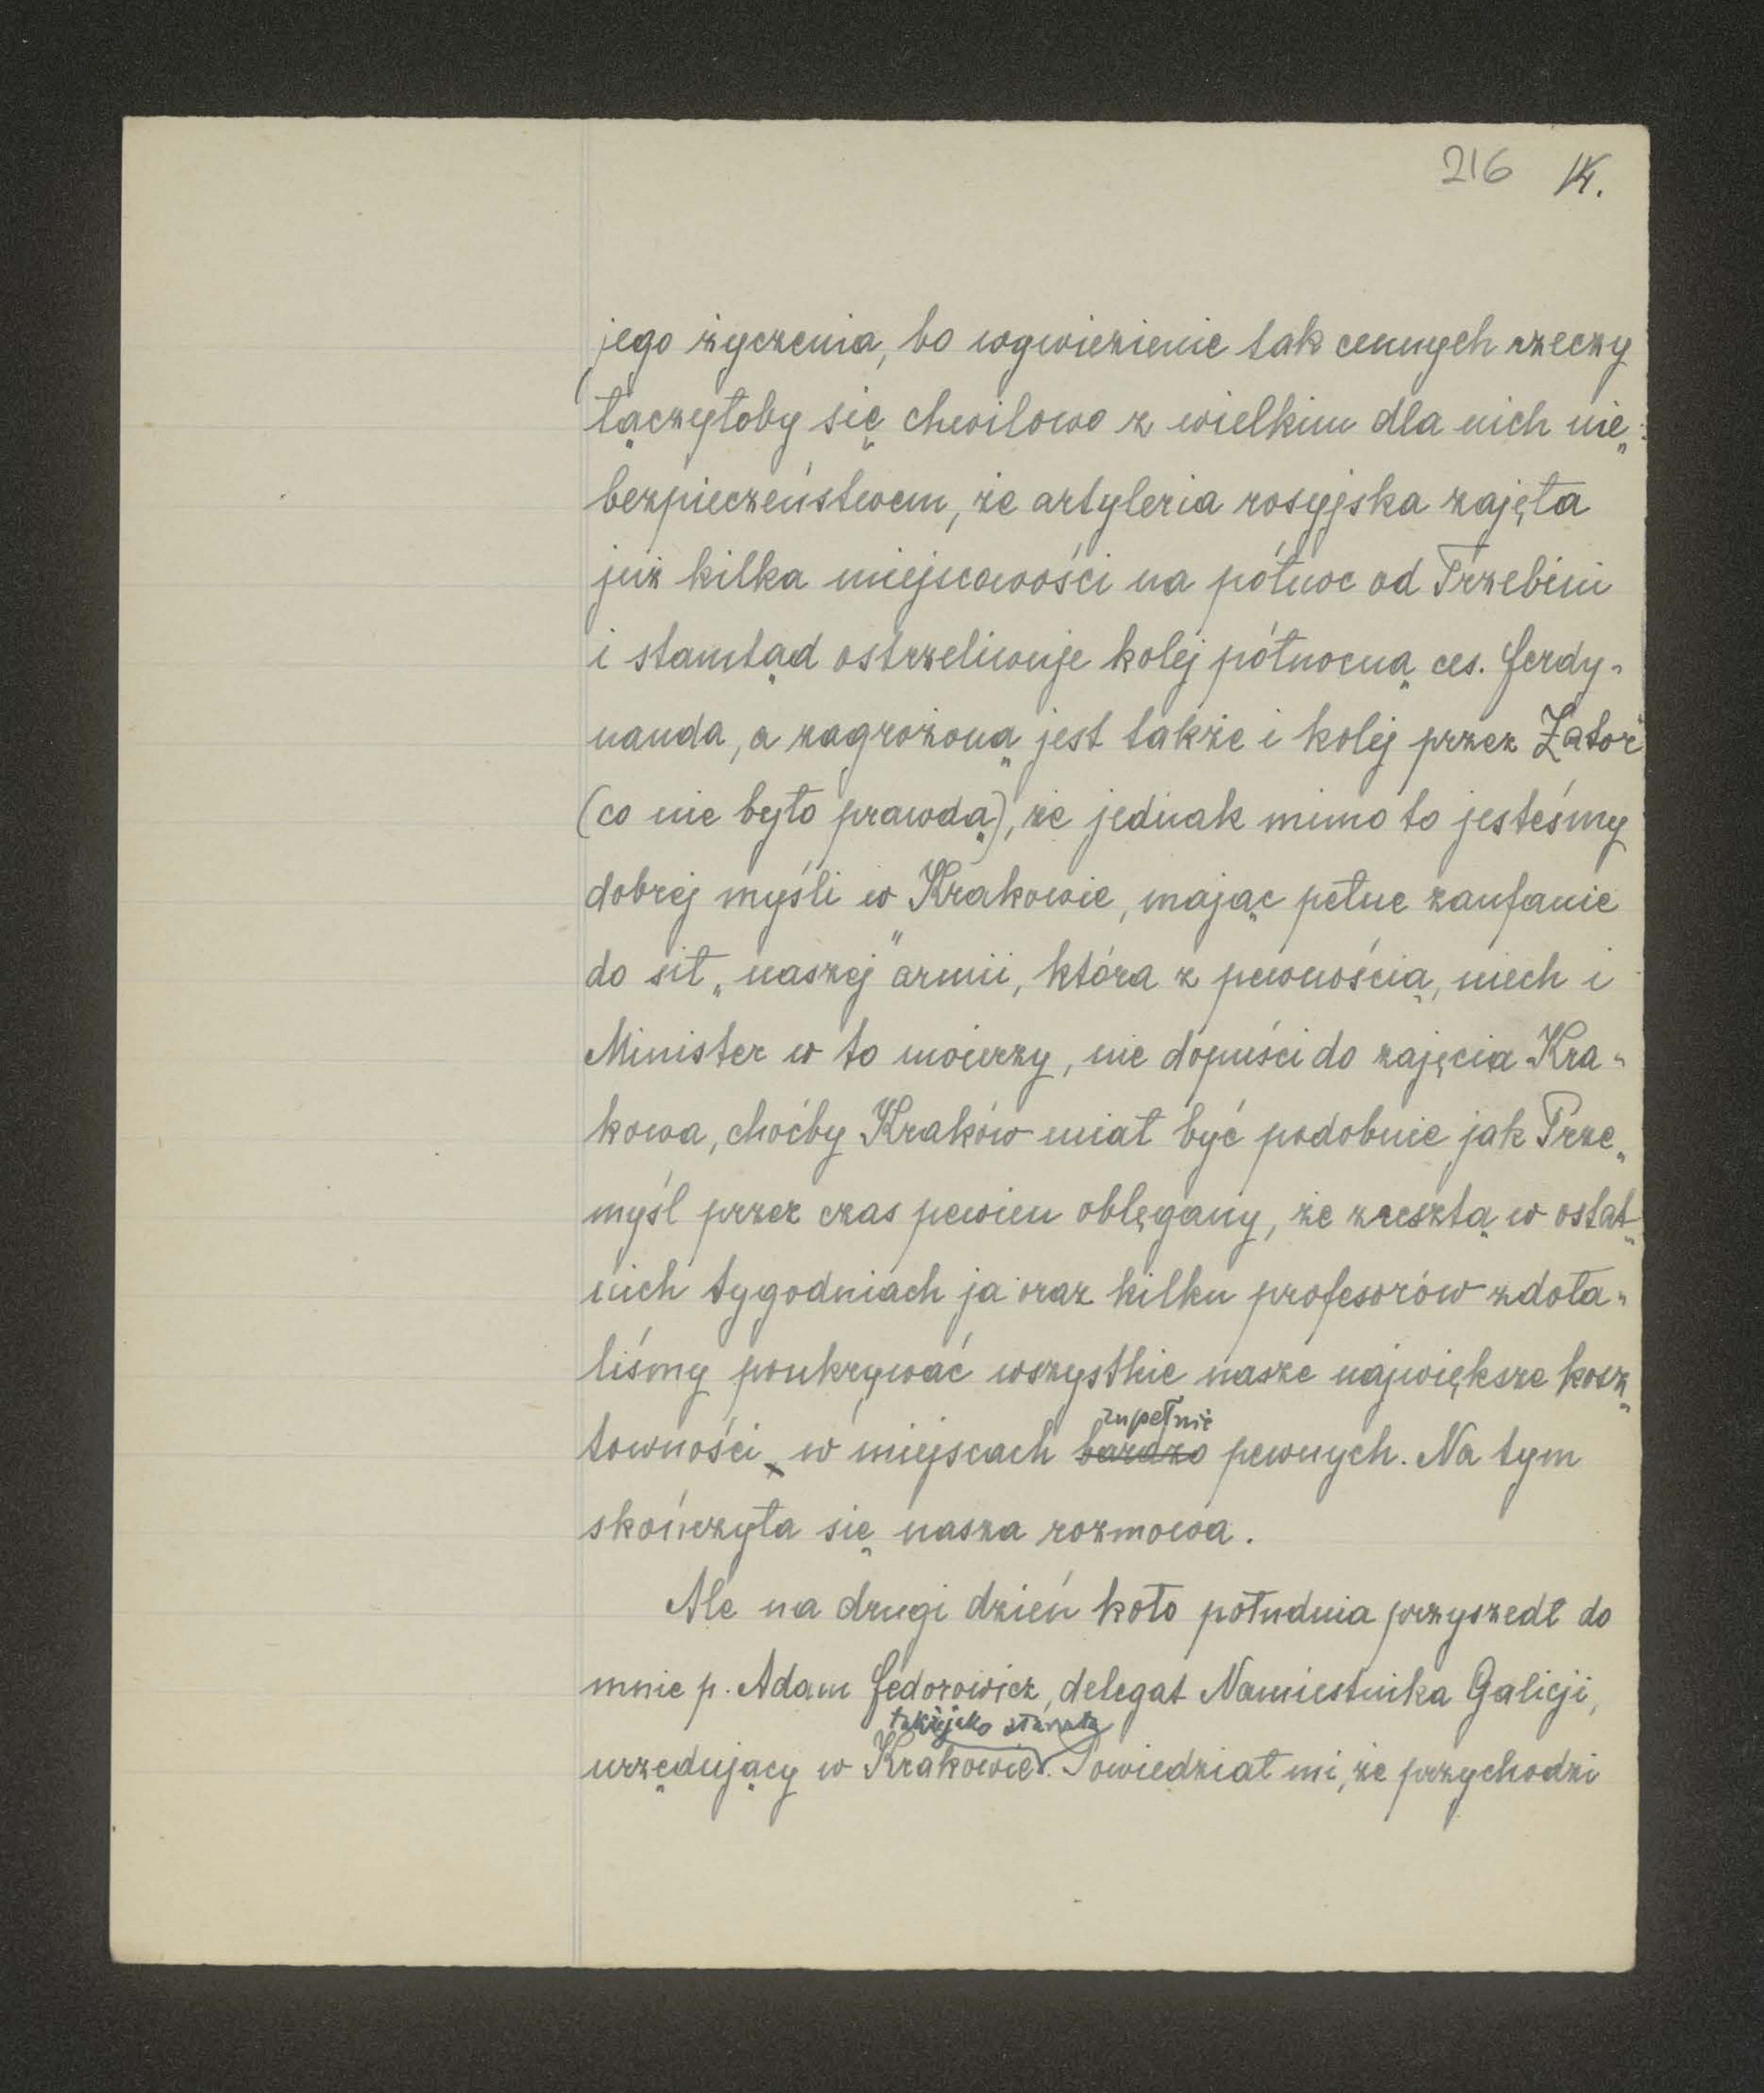 216 14.
jego życzenia, bo wywiezienie tak cennych rzeczy
łączyłoby się chwilowo z wielkim dla nich nie„
bezpieczeństwem, że artyleria rosyjska zajęła
już kilka miejscowości na północ od Trzebini
i stamtąd ostrzeliwuje kolej północną ces. Ferdy„
nanda, a zagrożoną jest także i kolej przez Zator
(co nie było prawdą), że jednak mimo to jesteśmy
dobrej myśli w Krakowie, mając pełne zaufanie
do sił „naszej” armii, która z pewnością, niech i
Minister w to uwierzy, nie dopuści do zajęcia Kra„
kowa, choćby Kraków miał być podobnie jak Prze„
myśl przez czas pewien oblęgany, że zresztą w ostat„
nich tygodniach ja oraz kilku profesorów zdoła„
liśmy poukrywać wszystkie nasze największe kosz„
zupełnie
towności w miejscach bardzo pewnych. Na tym
skończyła się nasza rozmowa.
Ale na drugi dzień koło południa przyszedł do
mnie p. Adam Fedorowicz, delegat Namiestnika Galicji,
także jako starosta
urzędujący w Krakowie. Powiedział mi, że przychodzi